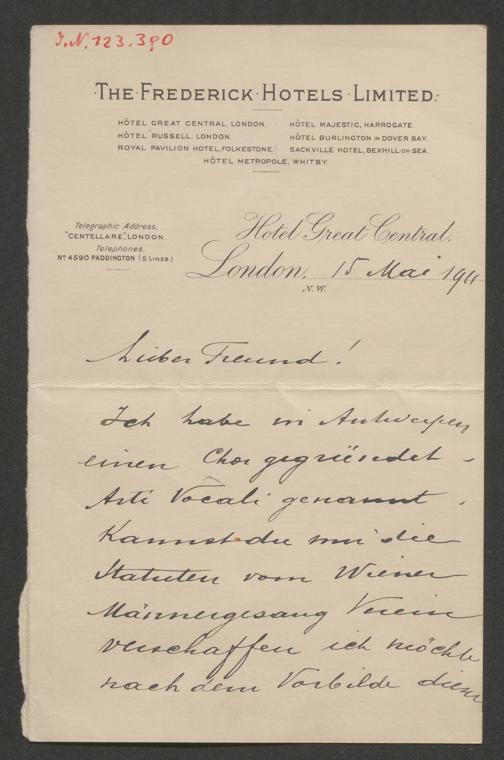 I.N. 123.390
·THE·FREDERICK·HOTELS·LIMITED·
HÔTEL GREAT CENTRAL, LONDON. HÔTEL MAJESTIC, HARROGATE.
HÔTEL RUSSELL, LONDON. HÔTEL BURLINGTON IN DOVER BAY.
ROYAL PAVILION HOTEL, FOLKESTONE. SACKVILLE HOTEL, BEXHILL-ON-SEA.
HÔTEL METROPOLE, WHITBY.
Telegraphic Address,
"CENTELLARE", LONDON.
Telephones.
Nº 4590 PADDINGTON (5 LINES.)
Hotel Great Central.
London, 15 Mai 1911
N.W.
Lieber Freund!
Ich habe in Antwerpen
einen Chor gegründet -
Arti Vocali genannt.
Kannst du mir die
Statuten vom Wiener
Männergesang Verein
verschaffen ich möchte
nach dem Vorbilde dieser